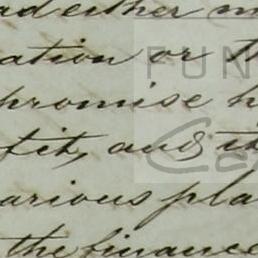 ad either m
ation or t
promise h
fit, and it
arious pla
the finance
FUN
Ce